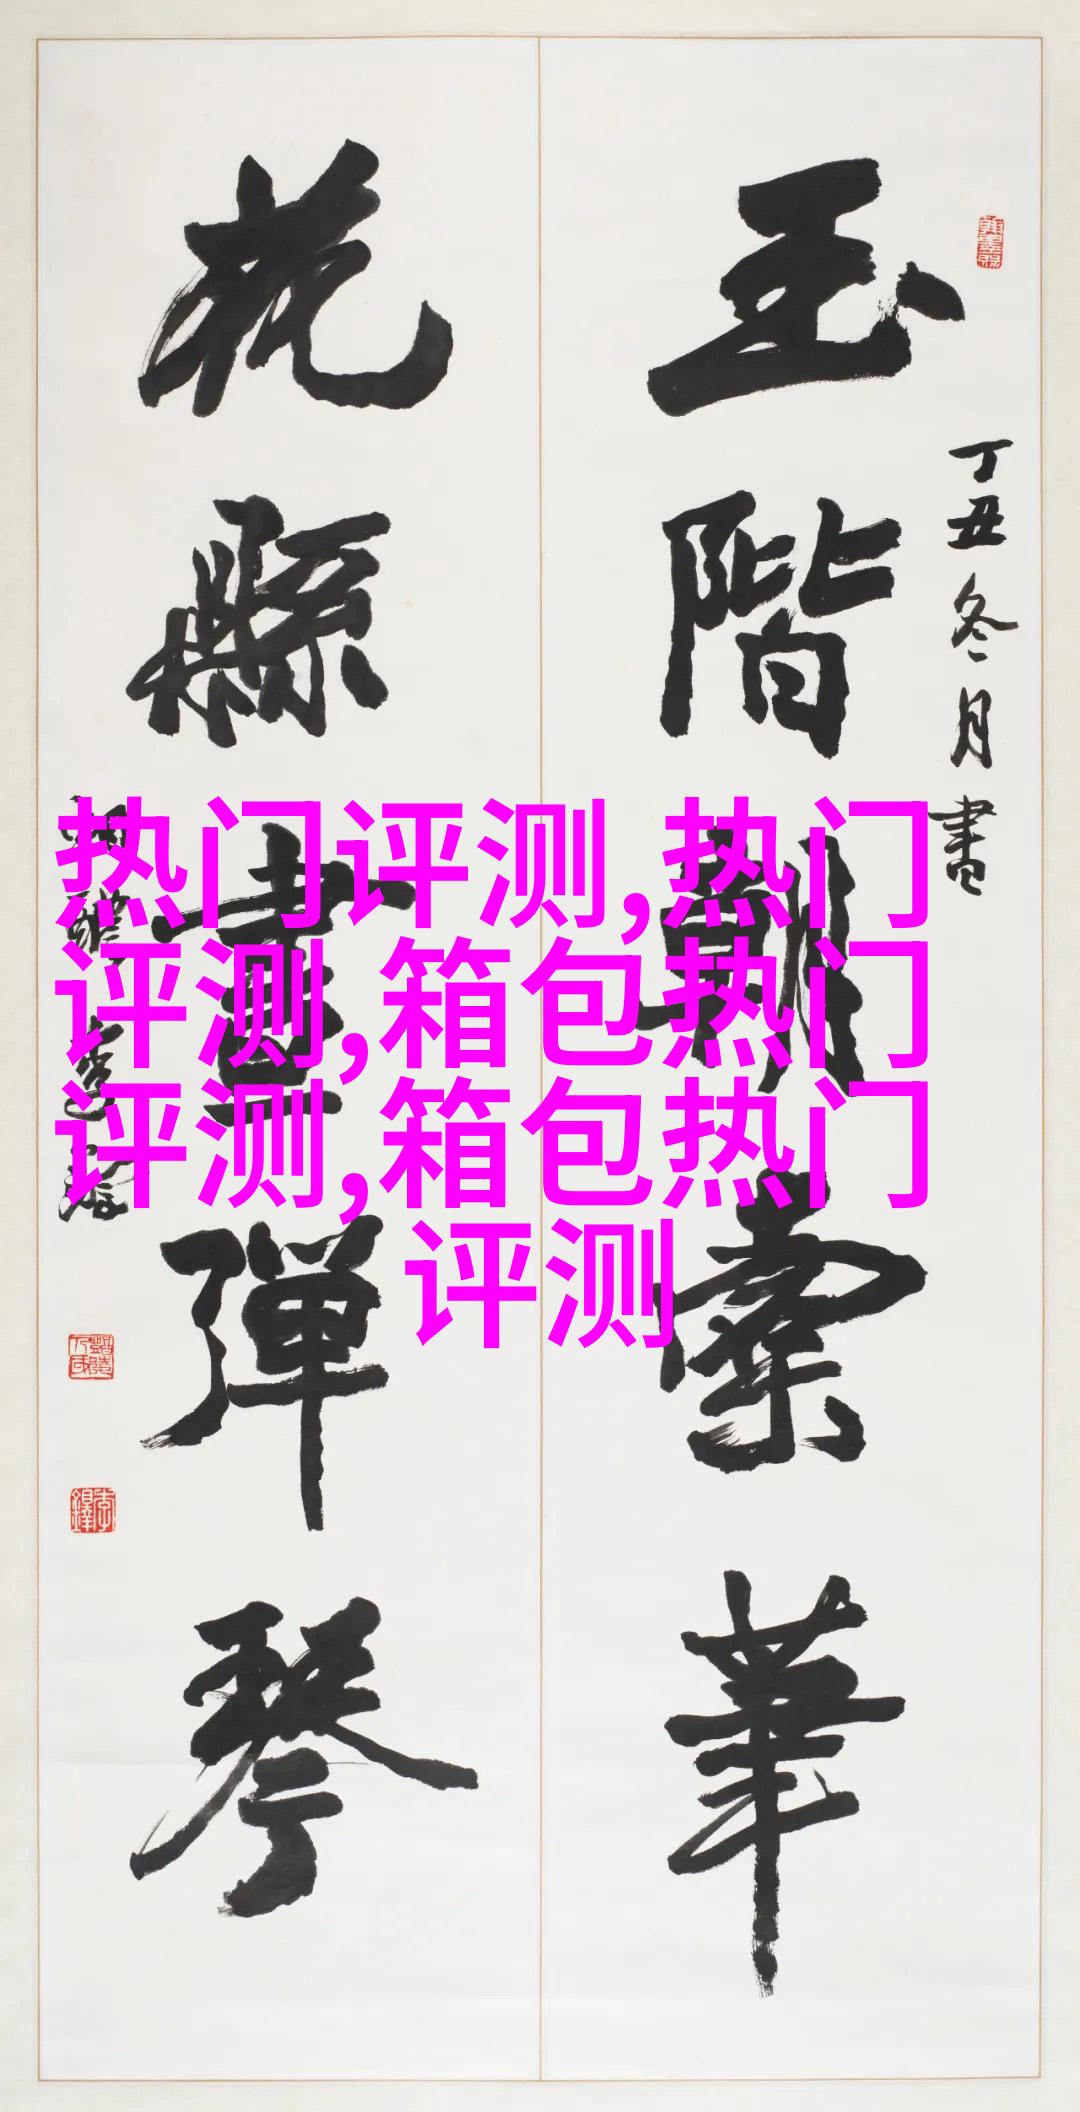 玉階朝彙筆
丁丑冬月書
花縣畫彈琴
热门评测,热门
评测,箱包热门
评测,箱包热门
评测